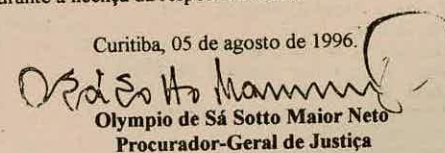 Curitiba, 05 de agosto de 1996.
Olympio de Sá Sotto Maior Neto
Procurador-Geral de Justiça